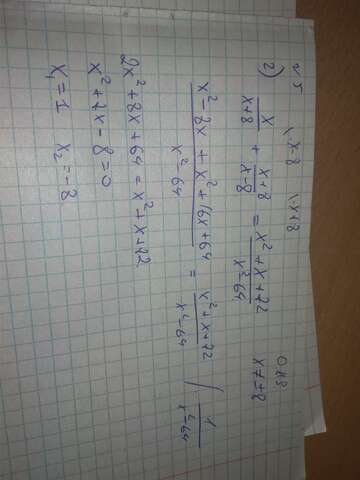 №5
\x-8 \x+8 ОДЗ:
2) x/(x+8) + (x+8)/(x-8) = (x²+x+72)/(x²-64) x≠±8
(x²-8x+x²+16x+64)/(x²-64) = (x²+x+72)/(x²-64) / 1/(x²-64)
2x²+8x+64=x²+x+72
x²+7x-8=0
x₁=1 x₂=-8